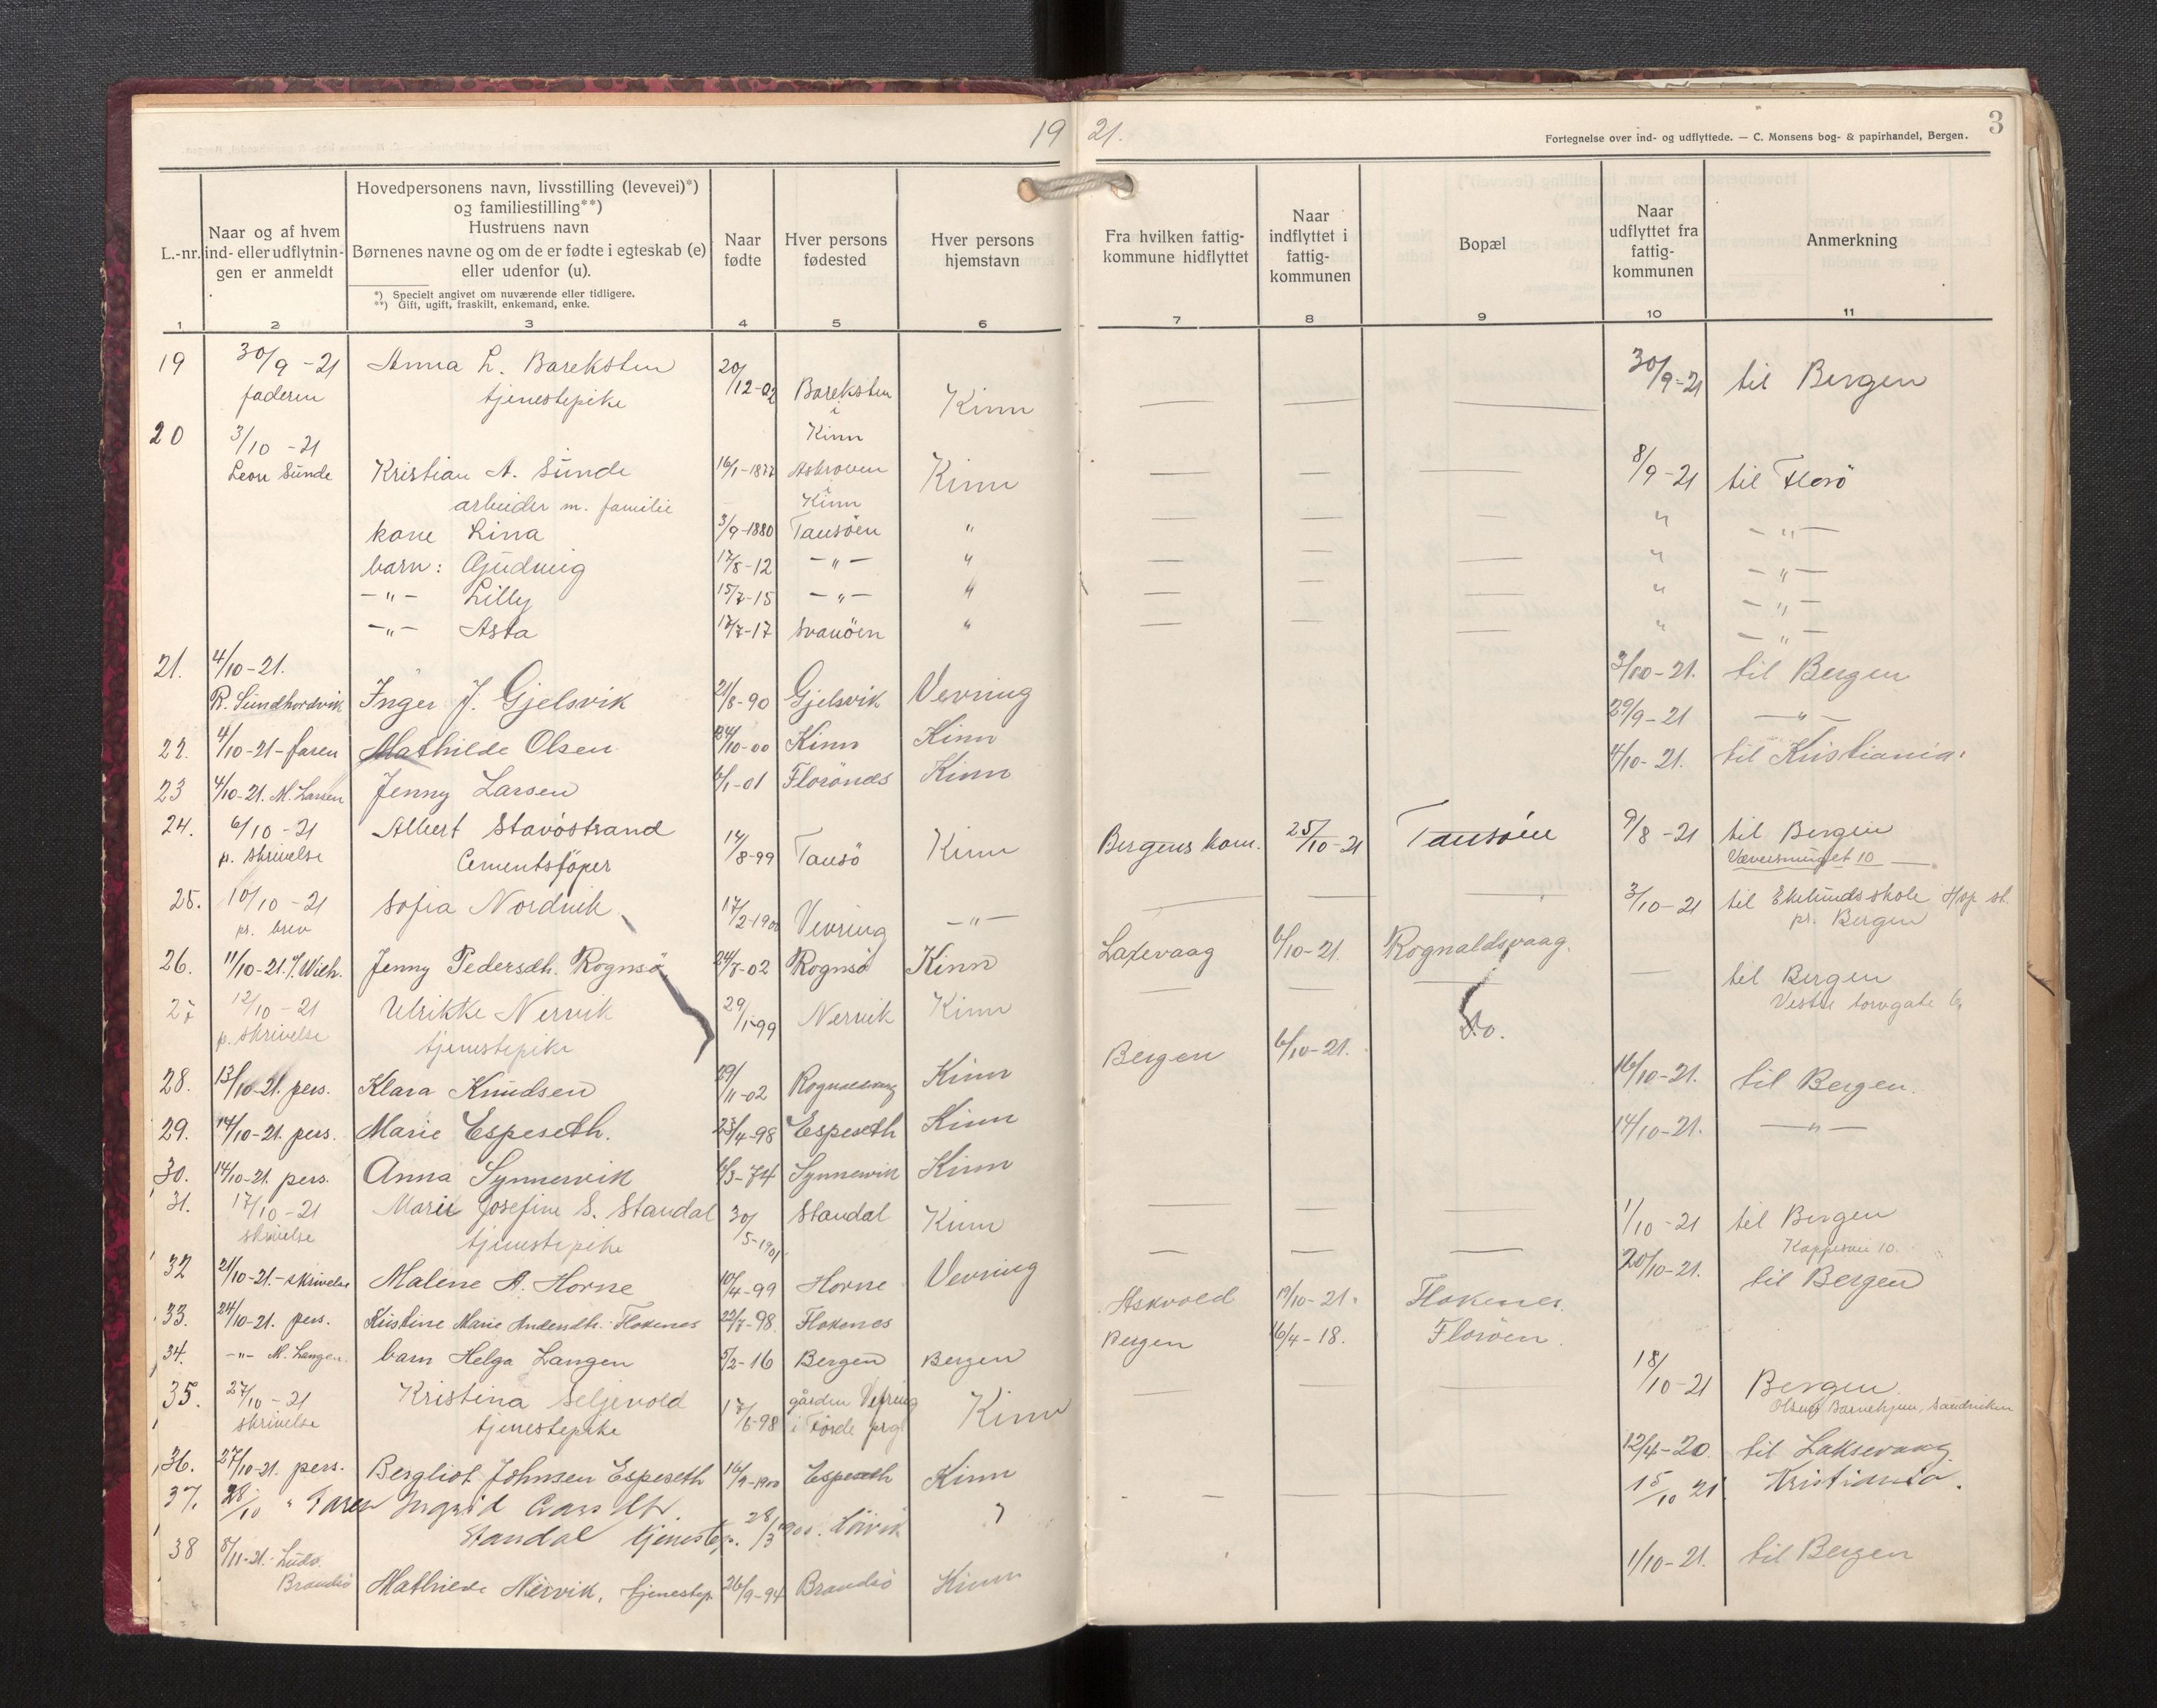 19 21.
3
Fortegnelse over ind- og udflyttede. — C. Monsens bog- & papirhandel, Bergen.
L.-nr.
Naar og af hvem
ind- eller udflytnin-
gen er anmeldt
Hovedpersonens navn, livsstilling (levevei)*)
og familiestilling**)
Hustruens navn
Børnenes navne og om de er fødte i egteskab (e)
eller udenfor (u).
*) Specielt angivet om nuværende eller tidligere.
**) Gift, ugift, fraskilt, enkemand, enke.
Naar
fødte
Hver persons
fødested
Hver persons
hjemstavn
Fra hvilken fattig-
kommune hidflyttet
Naar
indflyttet i
fattig-
kommunen
Bopæl
Naar
udflyttet fra
fattig-
kommunen
Anmerkning
1 2 3 4 5 6 7 8 9 10 11
19 30/9-21 Anna L. Bareksten 20/12-02 Bareksten Kinn — — — 30/9-21 til Bergen
faderen tjenestepike i
Kinn
20 3/10-21
Leon Sunde Kristian A. Sunde 16/1-1877 Askroven Kinn — — — 8/9-21 til Florö
arbeider m. familie i Kinn
kone Lina 3/9-1880 Tansöen " — — — " —"—
barn: Gudmug 17/8-12 —"— " — — — " —"—
—"— Lilly 15/7-15 —"— " — — — " —"—
—"— Asta 17/7-17 Svanöen " — — " —"—
21. 4/10-21. 3/10-21. til Bergen
R. Sundhordvik Inger J. Gjelsvik 21/8-90 Gjelsvik Vevring
22. 4/10-21-faren Mathilde Olsen 24/10-00 Kinn Kinn 29/9-21 —"—
23 4/10-21. M. Larsen Jenny Larsen 6/1-01 Florönes Kinn 4/10-21. til Kristiania.
24. 6/10-21 Albert Stavöstrand 14/8-99 Tansö Kinn Bergens kom. 25/10-21 Tansöen 9/8-21 til Bergen
p. skrivelse Cementstöper 10
25. 10/10-21 Sofia Nordvik 17/2-1900 Vevring —"— — — — 3/10-21 til Ekelunds skole Hop st.
pr. brev pr. Bergen
26. 11/10-21. Wilh. Jenny Pedersdh. Rognsö 24/7-02 Rognsö Kinn Laxevaag 6/10-21. Rognaldsvaag.
27 12/10-21 Ulrikke Nervik 29/1-99 Nervik Kinn — — — — til Bergen
p. skrivelse tjenestepike Vestre torvgate 6
28. 13/10-21. pers. Klara Knudsen 29/11-02 Kinn Bergen 6/10-21. do.
29. 14/10-21. pers. Marie Espeseth. 23/4-98 Espeseth Kinn 16/10-21. til Bergen.
30. 14/10-21. pers. Anna Synnervik 6/3-74 Synnervik Kinn 14/10-21. —"—
31. 17/10-21 Marie Josefine S. Standal 30/5-1901 Standal Kinn — — — 1/10-21 til Bergen
skrivelse tjenestepike 10.
32 21/10-21.-skrivelse Malene A. Horne 10/4-99 Horne Vevring — — — 20/10-21. til Bergen
33. 24/10-21. pers. Kristine Marie Andersdh. Flokenes 22/7-98 Flokenes Askvold 19/10-21. Flokenes.
34. —"— M. Langen. barn Helga Langen 5/2-16 Bergen Bergen Bergen 6/4-18. Floröen.
35. 27/10-21 Kristina Seljevold 17/6-98 gården Vefring Kinn — — — 18/10-21 Bergen
skrivelse tjenestepike i Förde prg. Barnehjem, Sandviken
36. 27/10-21. pers. Bergliot Johnsen Espeseth 16/9-1900 Espeseth Kinn 12/4-20. til Laksevaag
37. 28/10 " Faren Ingrid 15/10 21. Kristiania.
Standal tjenestep. 28/3
38 8/11-21. Ludv.
Brandsö Mathilde Nervik, tjenestep 26/9-94 Brandsö Kinn 1/10-21. til Bergen